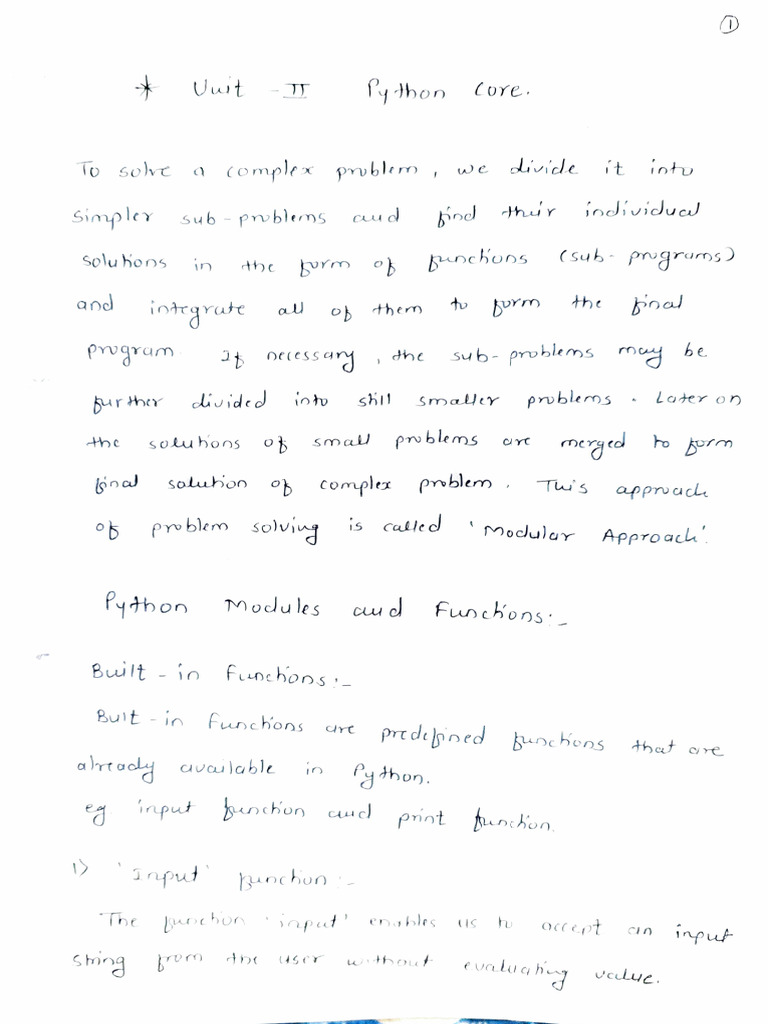 1
* Unit - II Python Core.
To solve a complex problem, we divide it into
simpler sub-problems and find their individual
solutions in the form of functions (sub-programs)
and integrate all of them to form the final
program. If necessary, the sub-problems may be
further divided into still smaller problems. Later on
the solutions of small problems are merged to form
final solution of complex problem. This approach
of problem solving is called 'Modular Approach'.
Python Modules and Functions:-
Built-in Functions:-
Bult-in Functions are predefined functions that are
already available in Python.
eg input function and print function.
1) 'Input' function:-
The function 'input' enables us to accept an input
string from the user without evaluating value.